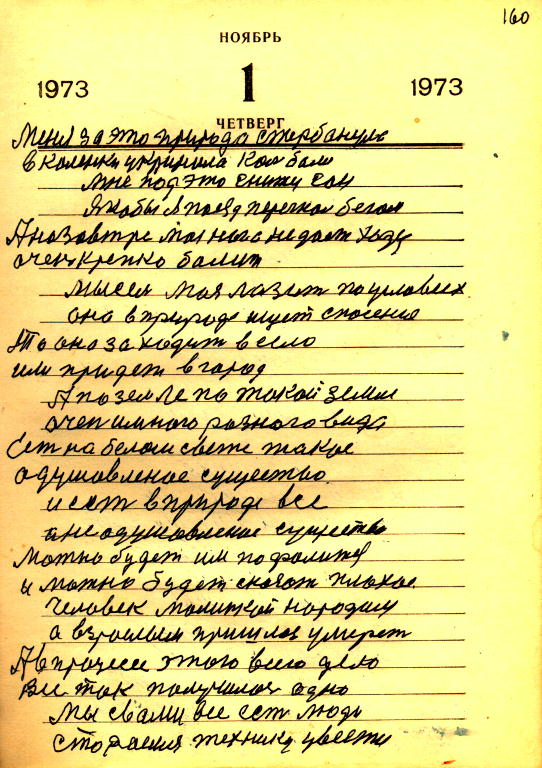 160
НОЯБРЬ
1973 1 1973
ЧЕТВЕРГ
Меня за это природа стербанула
в коленки укринила
мне под это снижу сон
якобы я поезд перегнал бегом
А на завтре моя нога не дает ходу
очен крепко балит
мысел моя лазит по условиех
она в природе ищет спосение
То она заходит в село
или придет в город
А по земле по такой земли
очен много разного вида
Ест на белом свете такое
одушовленое существо
и ест в природе все
и не одушовленое существо
Можно будет им пофалится
и можно будет сказат плохое
Человек малинкой народился
а взрослым пришлос умерет
А в процесе этого всего дело
Все так получилос одно
Мы с вами все ест люди
старания технику увести